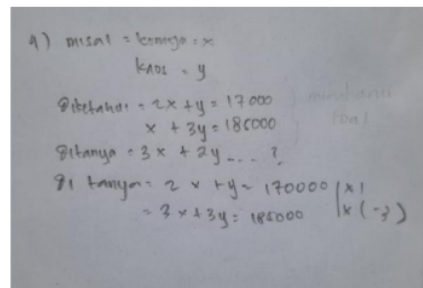 9) misal = kemeja = x
kaos = y
Diketahui = 2x + y = 17000
x + 3y = 185000
Ditanya = 3x + 2y ... ?
Di tanya = 2x + y = 170000 | x 1
= 3x + 3y = 185000 | x (-3)